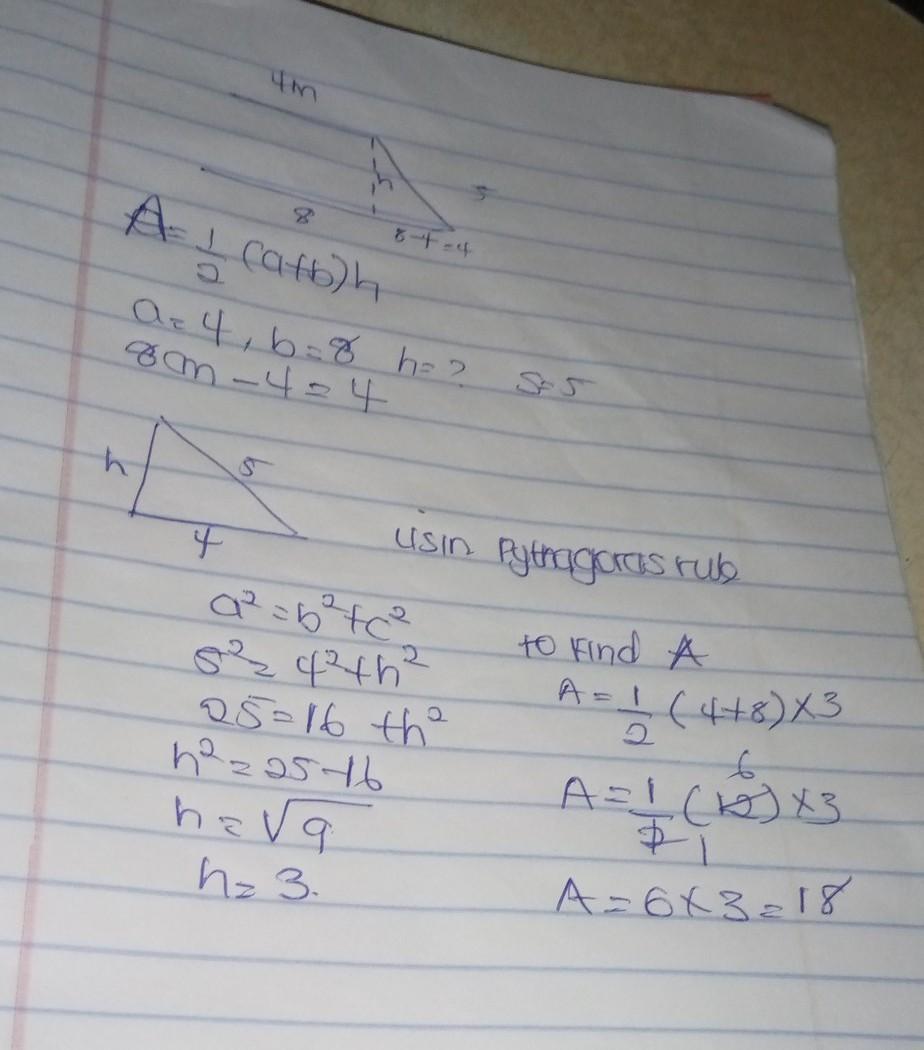 4m
h
5
8
8-4=4
A=1/2(a+b)h
a=4, b=8 h=? S=5
8m-4=4
h
5
4
usin Pythagoras rule
a²=b²+c²
5²=4²+h²
25=16+h²
h²=25-16
h=√9
h=3.
to Find A
A=1/2(4+8)×3
A=1/2(12)×3
6
1
A=6×3=18